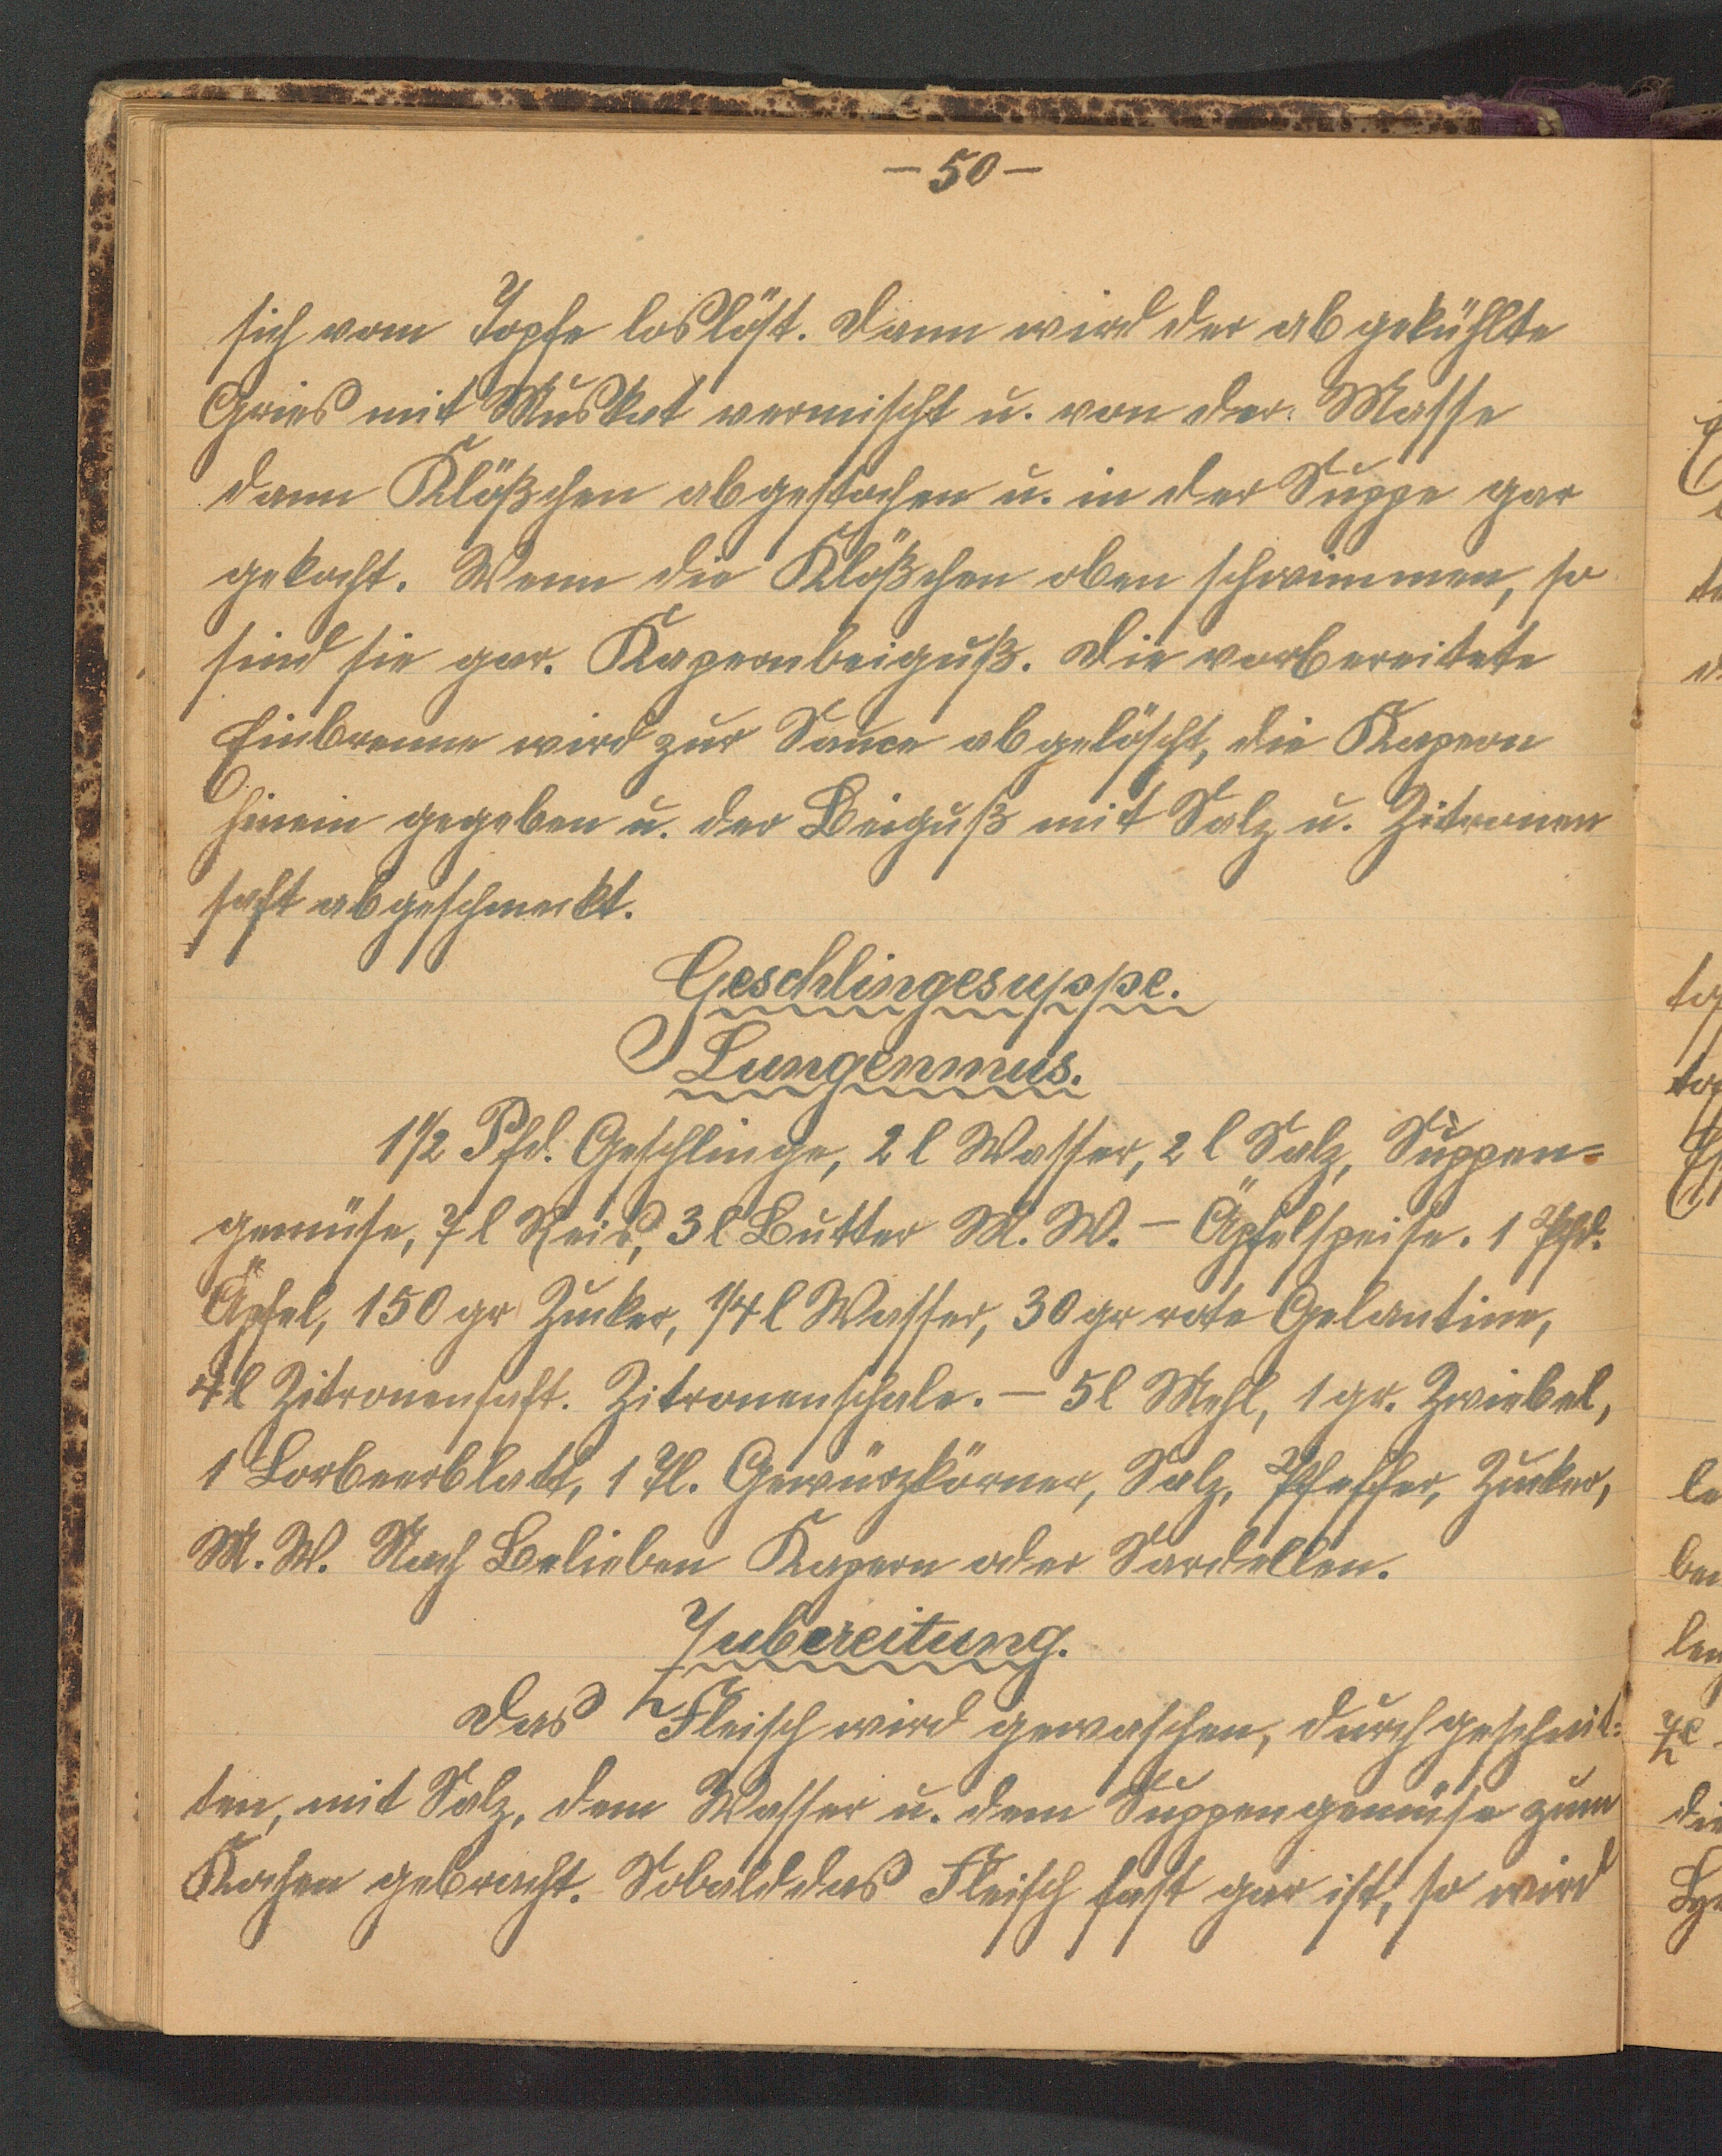 — 50 —
sich vom Topfe loslöst. Dann wird der abgekühlte
Gries mit Muskat vermischt u. von der Masse
dann Klößchen abgestochen u. in der Suppe gar
gekocht. Wenn die Klößchen oben schwimmen, so
sind sie gar. Kapernbeiguß. Die vorbereitete
Einbrenne wird zur Sauce abgelöscht, die Kapern
hinein gegeben u. der Beiguß mit Salz u. Zitronen
saft abgeschmeckt.
Geschlingesuppe.
Lungenmus.
1 1/2 Pfd. Geschlinge, 2 l Wasser, 2 l Salz, Suppen=
gemüse, 7 l Reis, 3 l Butter M. W. — Äpfelspeise. 1 Pfd.
Äpfel, 150 gr Zucker, 1/4 l Wasser, 30 gr rote Gelantine,
4 l Zitronensaft. Zitronenschale. — 5 l Mehl, 1 gr. Zwiebel,
1 Lorbeerblatt, 1 Tl. Gewürzkörner, Salz, Pfeffer, Zucker,
M. W. Nach Belieben Kapern oder Sardellen.
Zubereitung.
Das Fleisch wird gewaschen, durchgeschnit=
ten, mit Salz, dem Wasser u. dem Suppengemüse zum
Kochen gebracht. Sobald das Fleisch fast gar ist, so wird